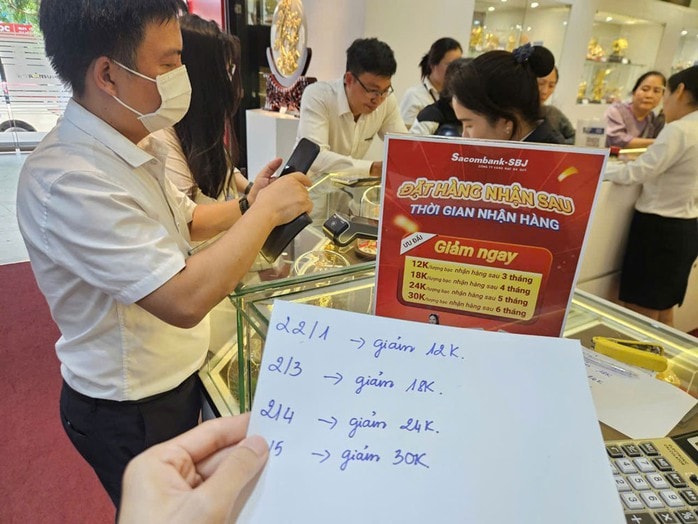 Sacombank-SBJ
ĐẶT HÀNG NHẬN SAU
THỜI GIAN NHẬN HÀNG
ƯU ĐÃI
Giảm ngay
12K/lượng bạc nhận hàng sau 3 tháng
18K/lượng bạc nhận hàng sau 4 tháng
24K/lượng bạc nhận hàng sau 5 tháng
30K/lượng bạc nhận hàng sau 6 tháng
22/1 → giảm 12K.
2/3 → giảm 18K.
2/4 → giảm 24K.
/5 → giảm 30K